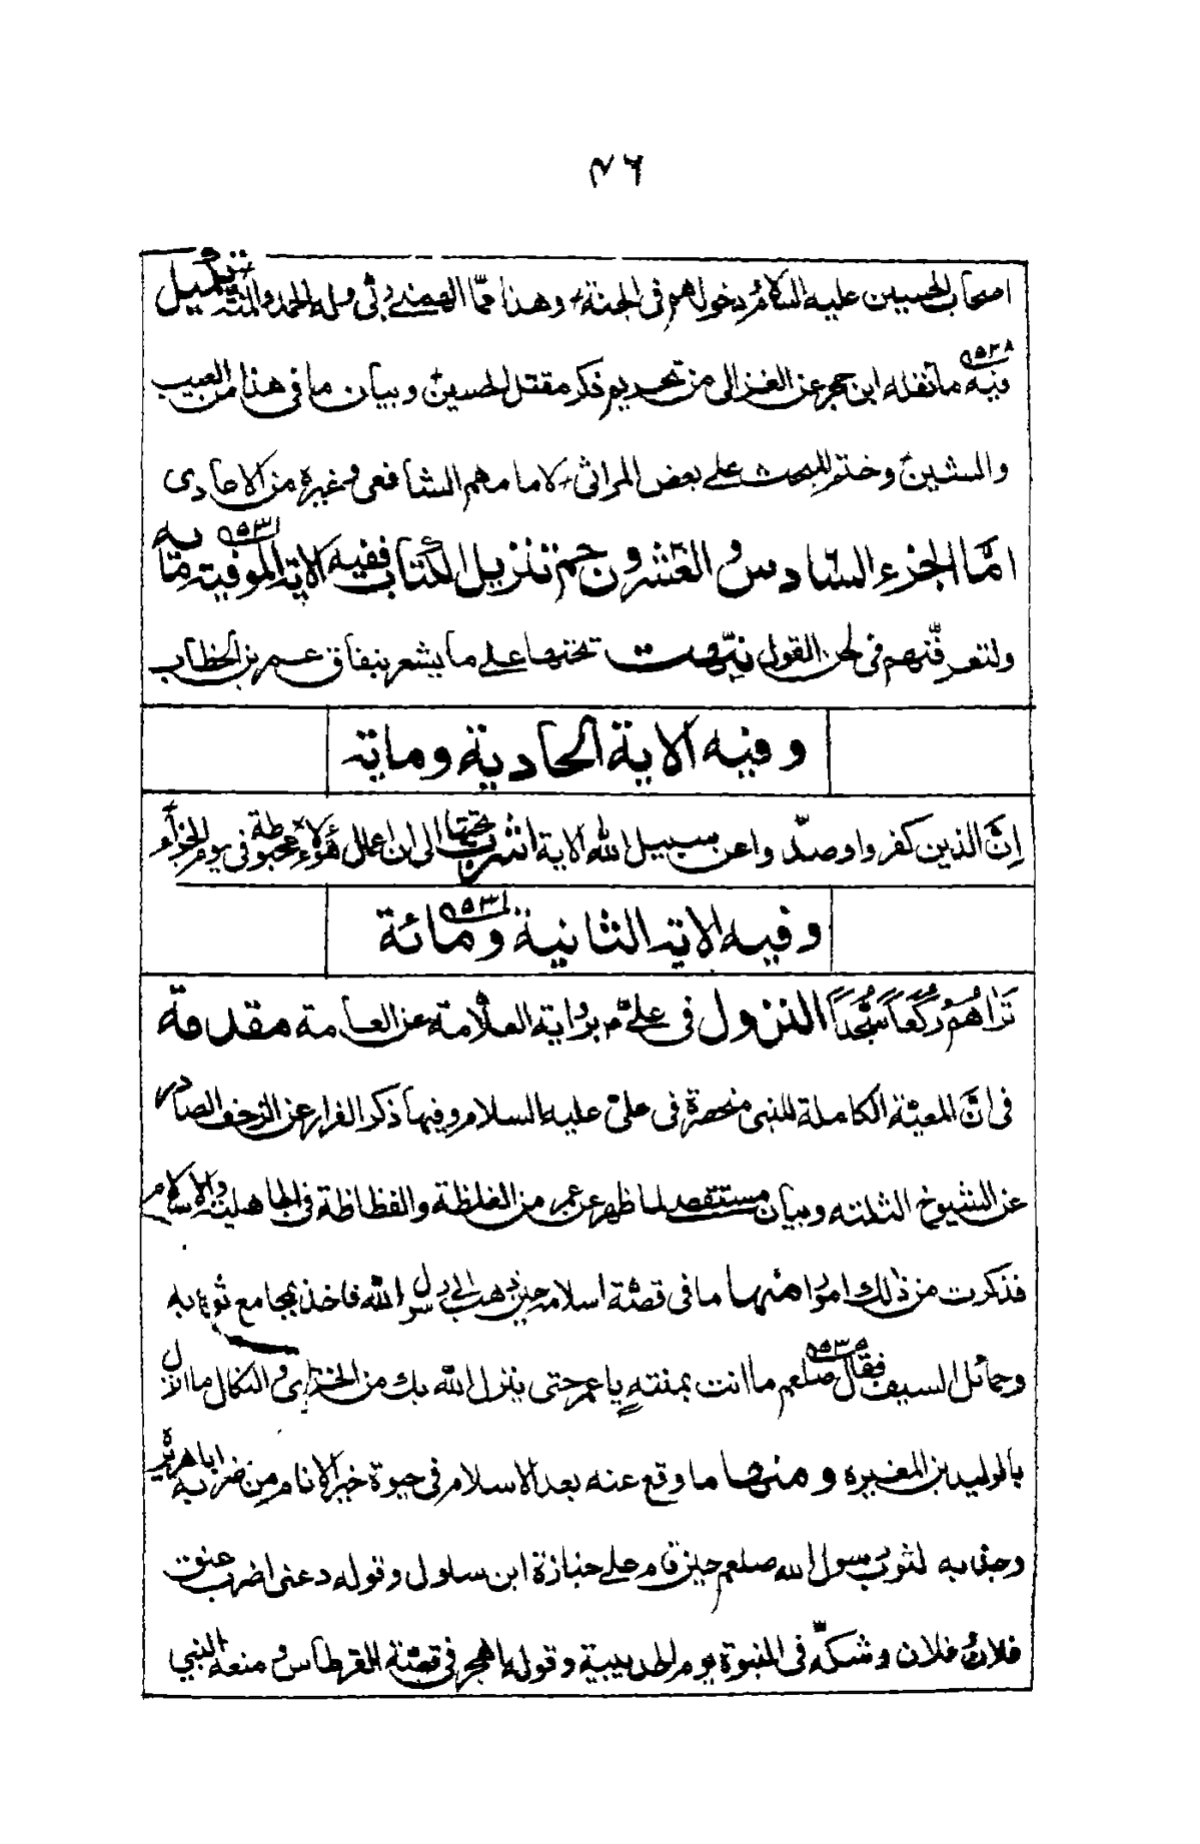 ٤٦
اصحاب الحسين عليه السلام بدخولهم فى الجنة وهذا ممّا الهمنى ربى وله الحمد والمنّة تذييل
فيه ما نقله ابن حجر عن الغزالى من تحريم ذكر مقتل الحسين وبيان ما فى هذا من العيب
والشين وختم البحث على بعض المراثى لامامهم الشافعى وغيره من الاحادى
امّا الجزء السادس والعشرون حم تنزيل الكتاب ففيه الاية الموفية مائة
ولتعرفنّهم فى لحن القول نبّهت تحتها على ما يشعر بنفاق عمر بن الخطاب
وفيه الاية الحادية ومائة
انّ الذين كفروا وصدّوا عن سبيل الله الاية اشرت تحتها الى ان اعمال هؤلاء محبوطة فى يوم الجزاء
وفيه الاية الثانية ومائة
تَرٰاهُمْ رُكَّعاً سُجَّداً النزول فى علىّ برواية العلّامة عن العامة مقدمة
فى انّ المعيّة الكاملة للنبى منحصرة فى علىّ عليه السلام وفيها ذكر الفرار عن الزحف الصادر
عن الشيوخ الثلثة وبيان مستقصى لما ظهر عن عمر من الغلظة والفظاظة فى الجاهلية والاسلام
فذكرت من ذلك امورا منها ما فى قصّة اسلامه حين ذهب الى رسول الله فاخذ بمجامع ثوبه
وحمائل السيف فقال صلعم ما انت بمنته يا عمر حتى ينزل الله بك من الخزى والنكال ما انزل
بالوليد بن المغيره ومنها ما وقع عنه بعد الاسلام فى حيوة خير الانام من ضربه اباهريرة
وجذبه لثوب رسول الله صلعم حين قام على جنازة ابن سلول وقوله دعنى اضرب عنق
فلان وفلان وشكّه فى النبوة يوم الحديبية وقوله ما هجر فى قصّة القرطاس ومنعه النبي